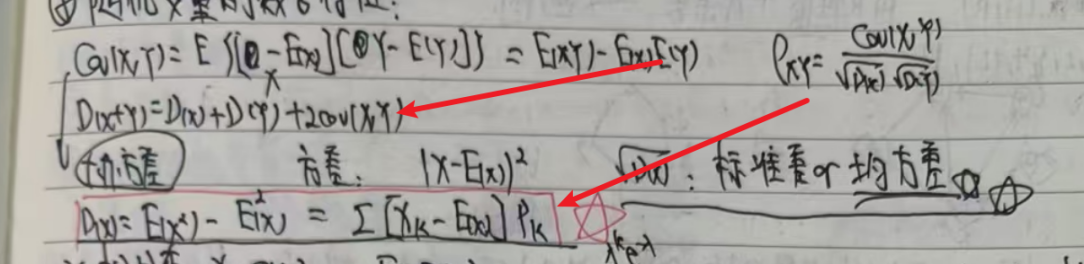 ④ 随机变量的数字特征:
Cov(X,Y)= E{[X-E(X)][Y-E(Y)]} = E(XY)-E(X)E(Y) ρXY= Cov(X,Y)/√D(X) √D(Y)
D(X+Y)=D(X)+D(Y)+2cov(X,Y)
协方差 方差: (X-E(X))² √D(X): 标准差or 均方差☆☆
D(X)= E(X²)- E²(X) = Σ[Xk-E(X)]Pk ☆